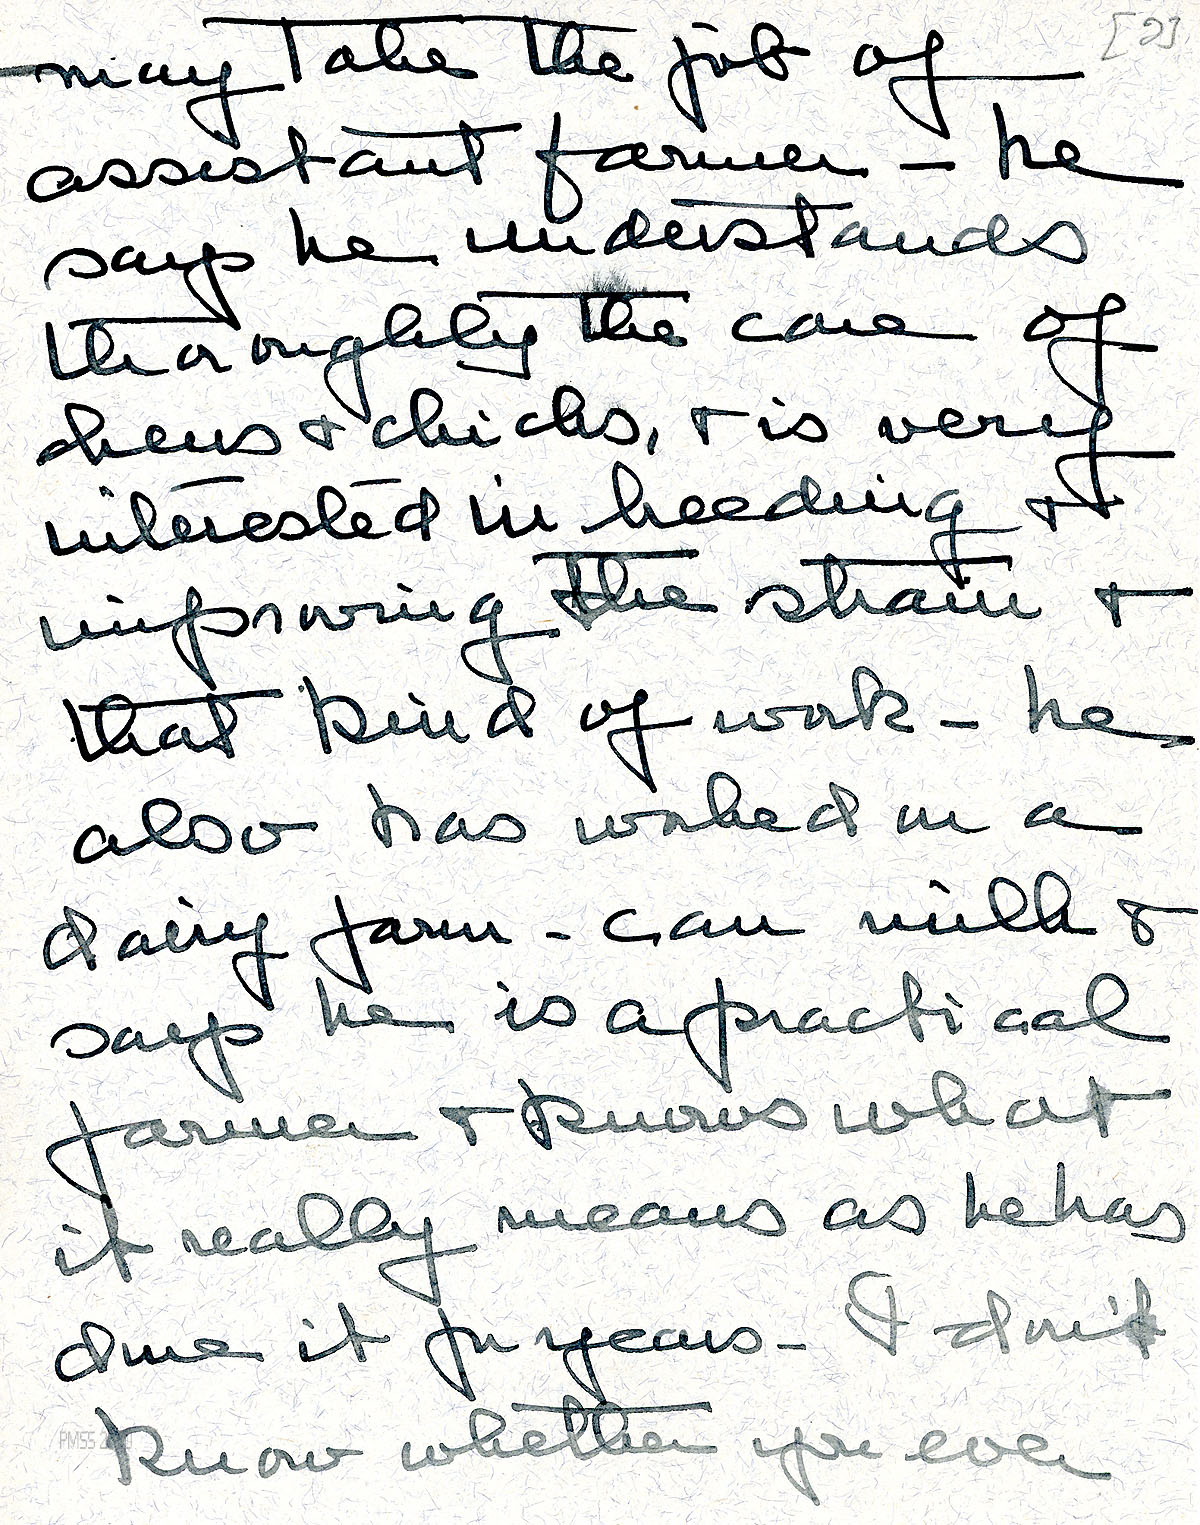 [2]
may take the job of
assistant farmer - he
says he understands
thoroughly the care of
hens & chicks, & is very
interested in breeding &
improving the strain &
that kind of work - he
also has worked on a
dairy farm - can milk &
says he is a practical
farmer & knows what
it really means as he has
done it for years - I don't
know whether you ever
PMSS